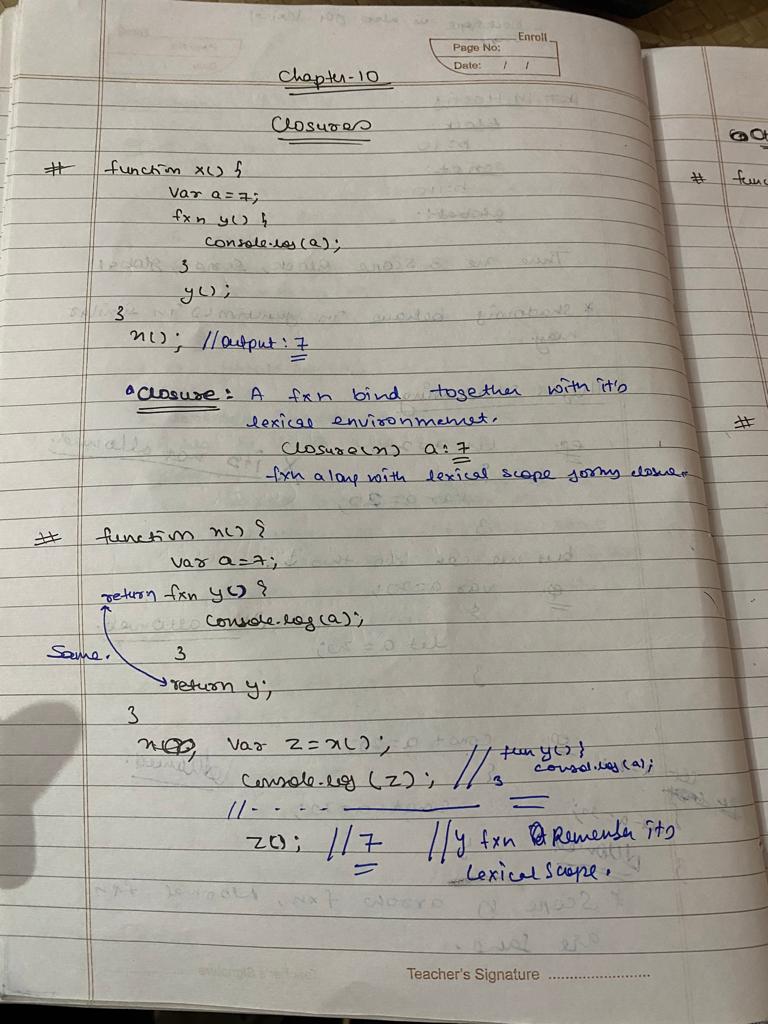 Enroll
Page No:
Date: / /
Chapter-10
Closures
# function x() {
var a=7;
fxn y() {
console.log(a);
}
y();
}
x(); //output: 7
Closure: A fxn bind together with it's
lexical environmemet.
Closure(x) a:7
fxn along with lexical scope forms closure.
# function x() {
var a=7;
return fxn y() {
console.log(a);
Same. }
return y;
}
var z=x(); // fun y() {
console.log(z); consol.log(a);
}
//- - - - -
z(); //7 //y fxn Remember its
Lexical Scope.
Teacher's Signature ..........................
# func
#